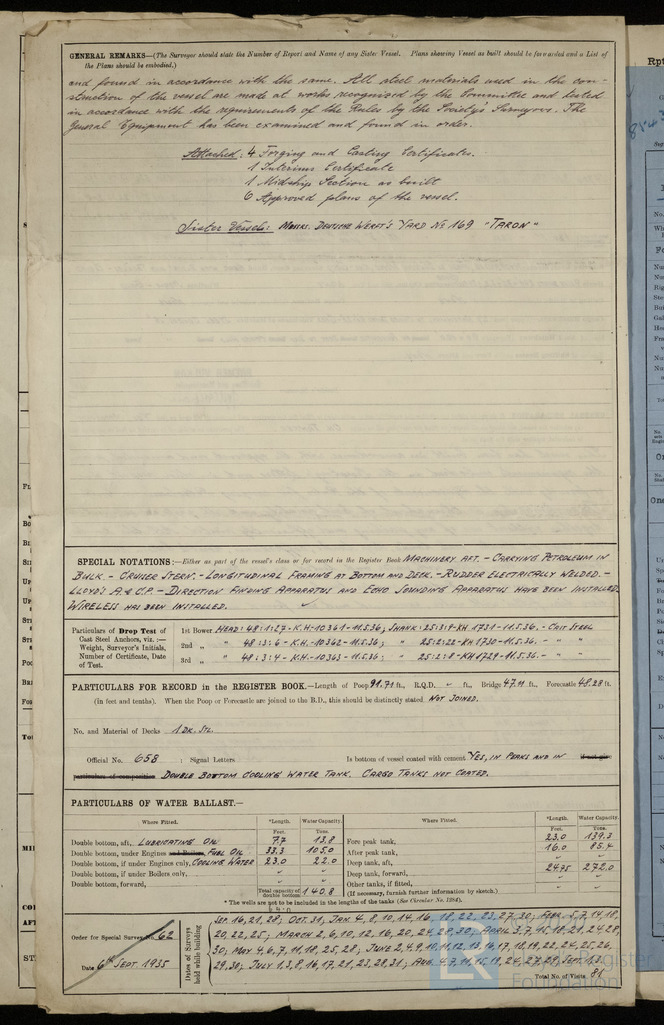 GENERAL REMARKS—(The Surveyor should state the Number of Report and Name of any Sister Vessel. Plans showing Vessel as built should be forwarded and a List of
the Plans should be embodied.)
and found in accordance with the same. All steel materials used in the con-
struction of the vessel are made at works recognized by the Committee and tested
in accordance with the requirements of the Rules by the Society's Surveyors. The
General Equipment has been examined and found in order.
Attached: 4 Forging and Casting Certificates.
1 Interim Certificate
1 Midship Section as built
6 Approved plans of the vessel.
Sister Vessel: Messrs. Deutsche Werft's Yard No 169 "Taron"
SPECIAL NOTATIONS:—Either as part of the vessel's class or for record in the Register Book Machinery aft. – Carrying Petroleum in
Bulk. – Cruiser Stern. – Longitudinal Framing at Bottom and Deck. – Rudder Electrically Welded. –
Lloyd's A. & C.P. – Direction Finding Apparatus and Echo Sounding Apparatus have been installed.
Wireless has been installed.
Particulars of Drop Test of
Cast Steel Anchors, viz.:—
Weight, Surveyor's Initials,
Number of Certificate, Date
of Test.
1st Bower Head: 48:1:27 - K.H-10361-11.5.36; Shank: 25:3:8-KH 1731-11.5.36. - Cast Steel
2nd " " 48:3:6 - K.H-10362-11.5.36; " 25:2:22-KH 1730-11.5.36. - " "
3rd " " 48:3:4 - K.H-10363-11.5.36; " 25:2:8-KH 1729-11.5.36. - " "
PARTICULARS FOR RECORD in the REGISTER BOOK.—Length of Poop 91.71 ft., R.Q.D. - ft., Bridge 47.11 ft., Forecastle 48.28 ft.
(in feet and tenths). When the Poop or Forecastle are joined to the B.D., this should be distinctly stated Not joined.
No. and Material of Decks 1 Dk. Stl.
Official No. 658 ; Signal Letters Is bottom of vessel coated with cement Yes, in Peaks and in if not give
particulars of composition Double Bottom Cooling Water Tank. Cargo Tanks not coated.
PARTICULARS OF WATER BALLAST.—
Where Fitted. *Length. Water Capacity. Where Fitted. *Length. Water Capacity.
Feet. Tons. Feet. Tons.
Double bottom, aft, Lubricating Oil 7.7 13.8 Fore peak tank, 23.0 139.3
Double bottom, under Engines and Boilers, Fuel Oil 33.3 105.0 After peak tank, 16.0 85.4
Double bottom, if under Engines only, Cooling Water 23.0 22.0 Deep tank, aft, " "
Double bottom, if under Boilers only, " " Deep tank, forward, 24.75 272.0
Double bottom, forward, " " Other tanks, if fitted, " "
Total capacity of double bottom 140.8 (If necessary, furnish further information by sketch.)
* The wells are not to be included in the lengths of the tanks (See Circular No. 1284).
Order for Special Survey No. 62
Date 6th Sept. 1935
Dates of Surveys held while building
Sep. 16, 21, 28; Oct. 31, Jan. 4, 8, 10, 14, 16, 18, 22, 23, 27, 30; Febr. 5, 7, 14, 18,
20, 22, 25; March 2, 6, 10, 12, 16, 20, 24, 28, 30; April 3, 7, 15, 18, 21, 24, 28,
30; May 4, 6, 7, 11, 18, 25, 28; June 2, 4, 9, 10, 11, 12, 13, 16, 17, 18, 19, 22, 24, 25, 26,
29, 30; July 1, 3, 8, 16, 17, 21, 23, 28, 31; Aug. 4, 7, 11, 15, 19, 24, 27, 29; Sept. 1, 3.
Total No. of Visits 81